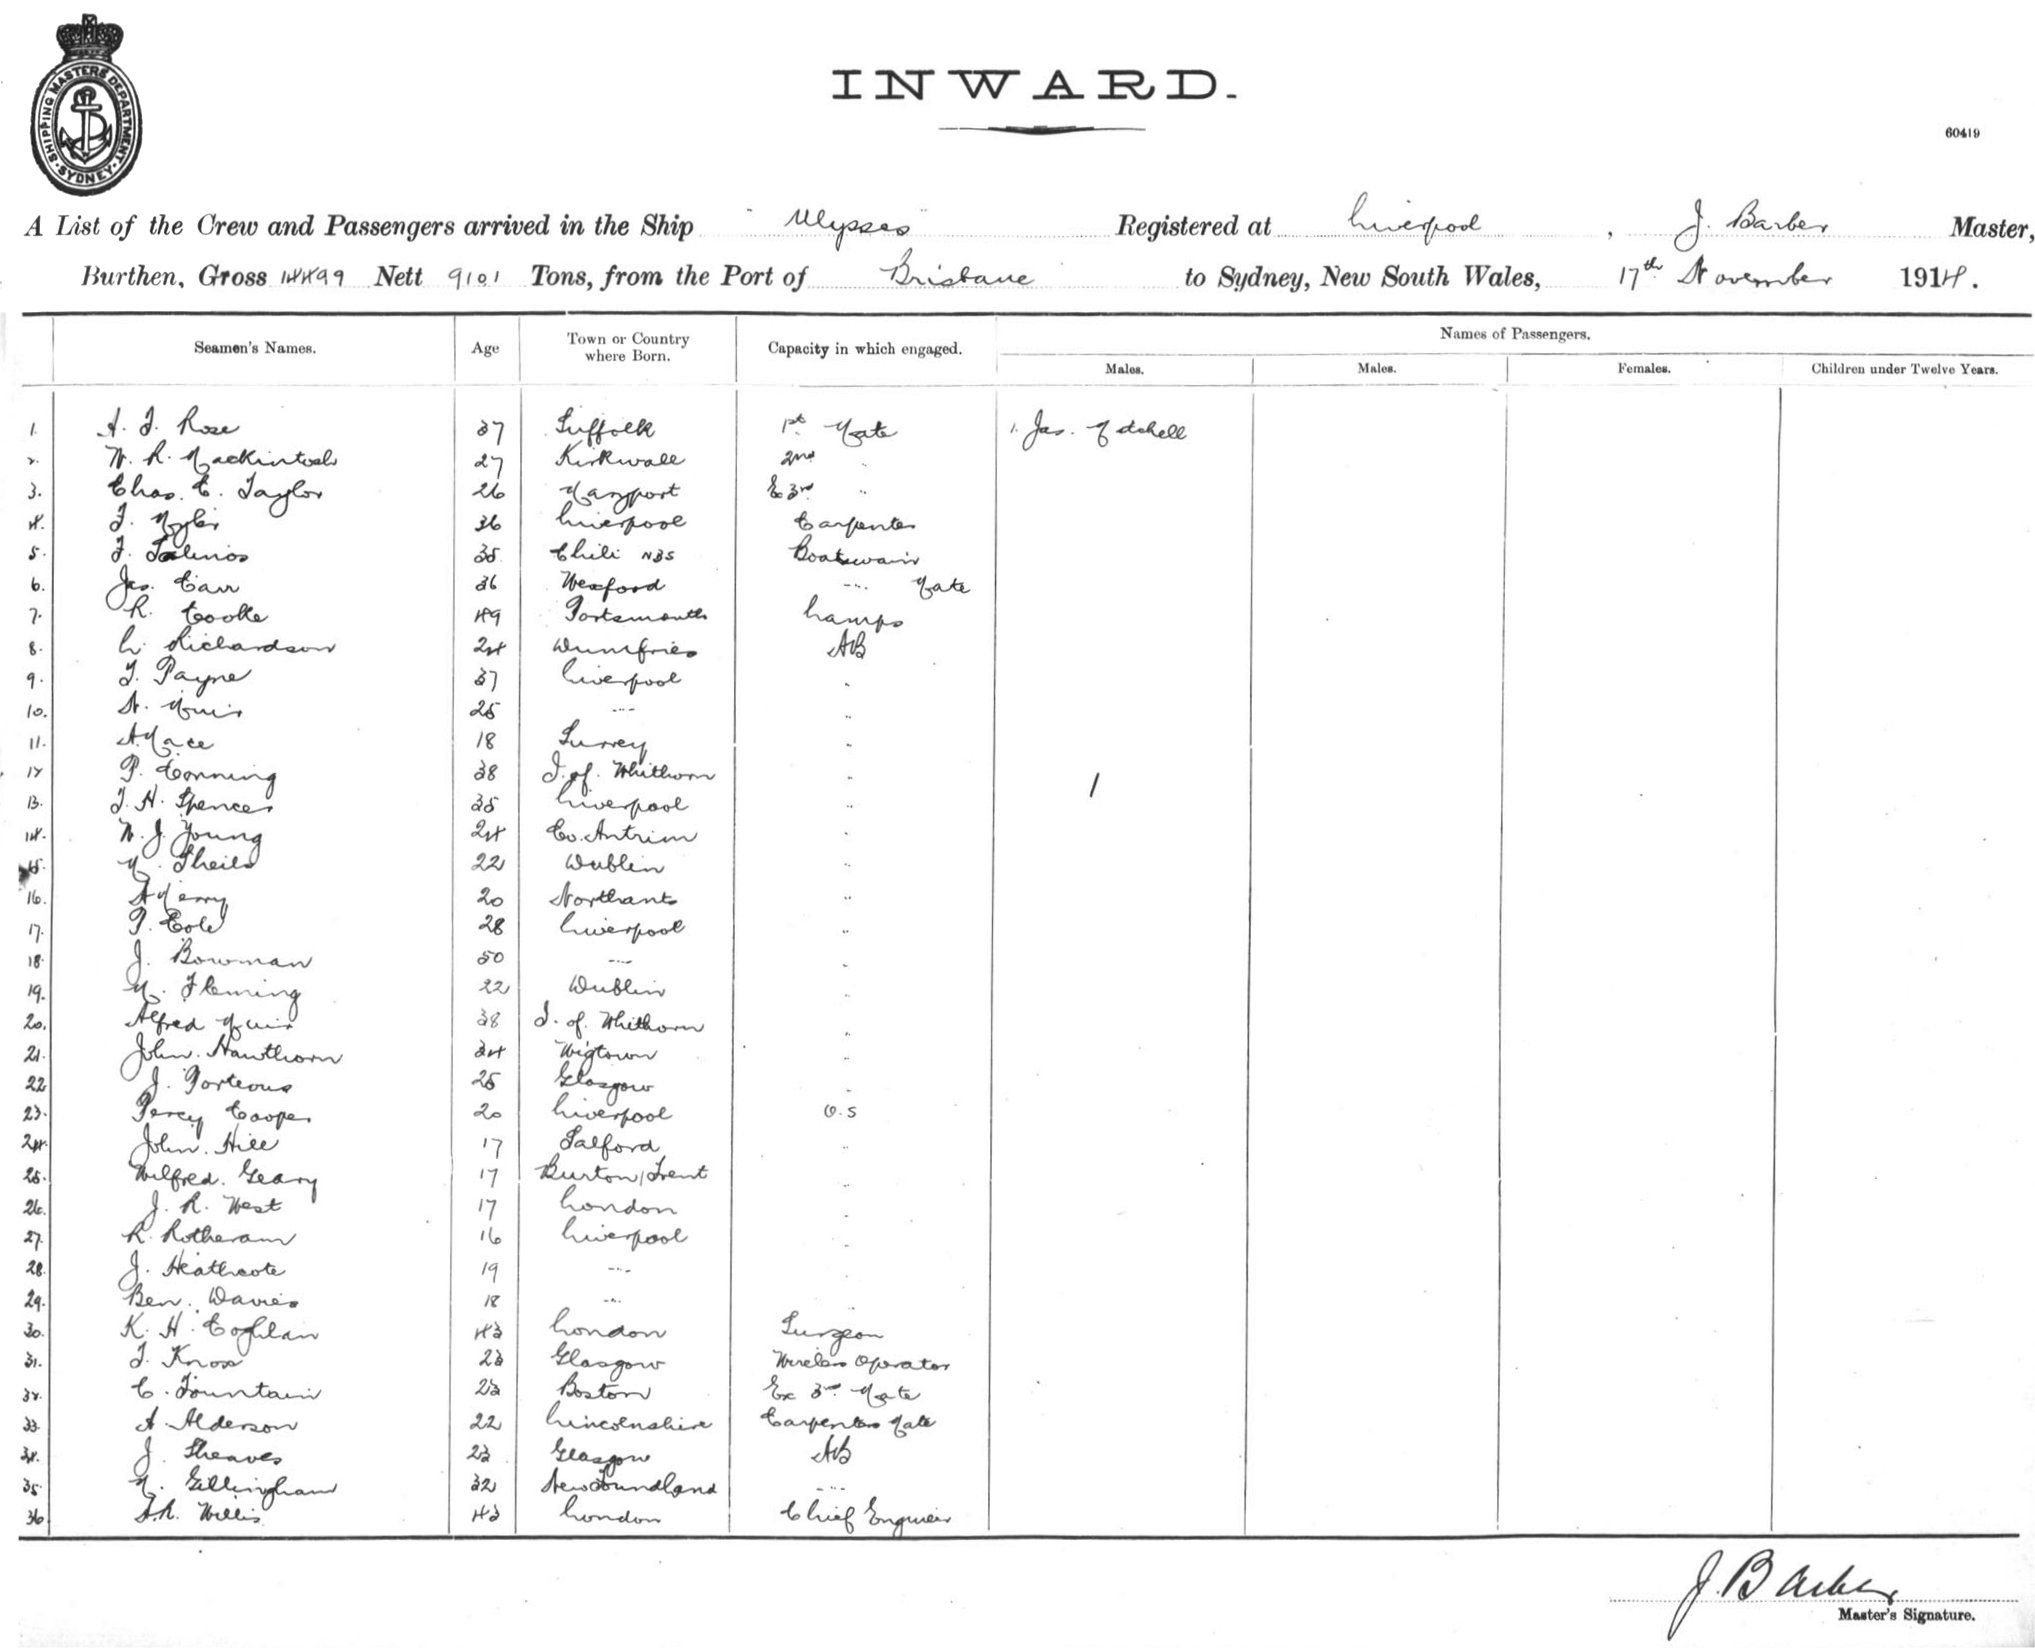 SHIPPING MASTERS DEPARTMENT
SYDNEY
INWARD.
60419
A List of the Crew and Passengers arrived in the Ship "Ulysses" Registered at Liverpool, J. Barber Master,
Burthen, Gross 14499 Nett 9101 Tons, from the Port of Brisbane to Sydney, New South Wales, 17th November 1914.
Seamen's Names. Age Town or Country where Born. Capacity in which engaged. Names of Passengers.
Males. Males. Females. Children under Twelve Years.
1. A. J. Rose 37 Suffolk 1st Mate 1. Jas. Mitchell
2. W. R. Mackintosh 27 Kirkwall 2nd "
3. Chas. E. Taylor 26 Maryport Ex 3rd "
4. J. Myler 36 Liverpool Carpenter
5. F. Salinos 35 Chili NBS Boatswain
6. Jas. Carr 36 Wexford " Mate
7. R. Cooke 49 Portsmouth Lamps
8. L. Richardson 24 Dumfries AB
9. T. Payne 37 Liverpool "
10. A. Muir 25 " "
11. A Mace 18 Surrey "
12 P. Conning 38 I. of. Whithorn " 1
13. J. H. Spencer 35 Liverpool "
14. W. J. Young 24 Co. Antrim "
15. M. Sheils 22 Dublin "
16. A Merry 20 Northants "
17. P. Cole 28 Liverpool "
18. J. Bowman 50 " "
19. M. Fleming 22 Dublin "
20. Alfred Muir 38 I. of. Whithorn "
21. John. Hawthorn 34 Wigtown "
22 J. Porteous 25 Glasgow "
23. Percy Cooper 20 Liverpool O.S
24. John. Hill 17 Salford "
25. Wilfred. Geary 17 Burton/Trent "
26. J. R. West 17 London "
27. R. Rotheram 16 Liverpool "
28. J. Heathcote 19 " "
29. Ben. Davies 18 " "
30. K. H. Coghlan 43 London Surgeon
31. J. Knox 23 Glasgow Wireless Operator
32. C. Fountain 23 Boston Ex 3rd Mate
33. A Alderson 22 Lincolnshire Carpenters Mate
34. J. Sheaves 23 Glasgow AB
35. M. Gillingham 32 Newfoundland "
36 A.R. Willis 43 London Chief Engineer
J. Barber
Master's Signature.